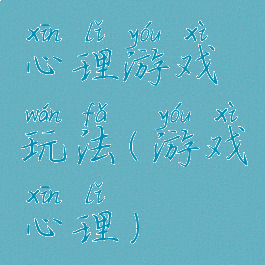 xīn lǐ yóu xì
心理游戏
wán fǎ yóu xì
玩法(游戏
xīn lǐ
心理)